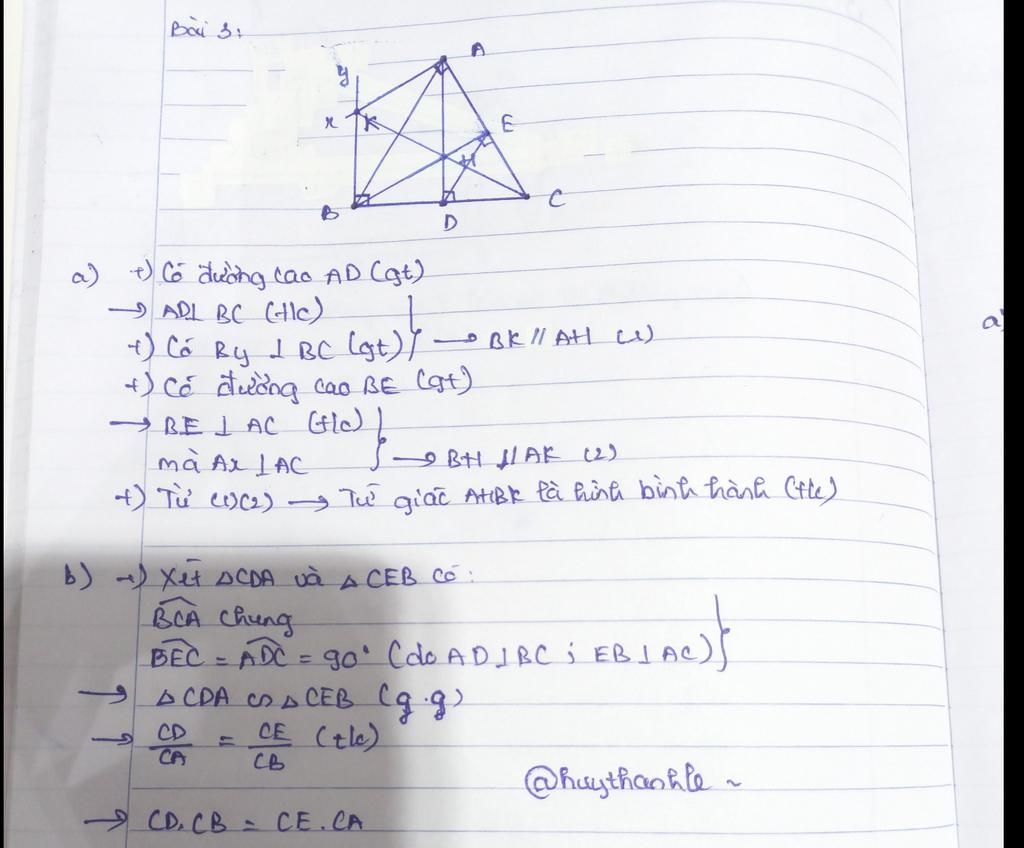 Bài 3:
A
y
x K
E
H
B
D
C
a) +) Có đường cao AD (gt)
→ AD⊥ BC (t/c)
+) Có By ⊥ BC (gt) → BK // AH (1)
+) Có đường cao BE (gt)
→ BE ⊥ AC (t/c)
mà Ax ⊥ AC → BH // AK (2)
+) Từ (1)(2) → Tứ giác AHBK là hình bình hành (t/c)
b) +) Xét △CDA và △CEB có:
B̂CA chung
B̂EC = ÂDC = 90° (do AD⊥BC ; EB⊥AC)
→ △CDA ∽ △CEB (g.g)
→ CD/CA = CE/CB (t/c)
@huythanhle ~
→ CD.CB = CE.CA
a)